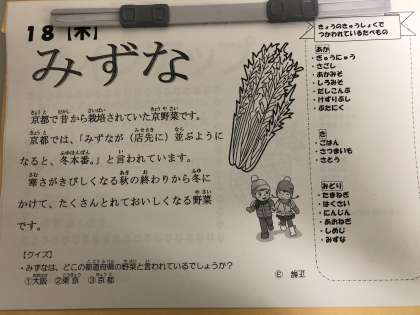 18【木】
みずな
京都で昔から栽培されていた京野菜です。
京都では、「みずなが（店先に）並ぶように
なると、冬本番。」と言われています。
寒さがきびしくなる秋の終わりから冬に
かけて、たくさんとれておいしくなる野菜
です。
【クイズ】
・みずなは、どこの都道府県の野菜と言われているでしょうか？
①大阪 ②東京 ③京都
きょうのきゅうしょくで
つかわれているたべもの
あか
・ぎゅうにゅう
・さごし
・あかみそ
・しろみそ
・だしこんぶ
・けずりぶし
・ぶたにく
き
・ごはん
・さつまいも
・さとう
みどり
・たまねぎ
・はくさい
・にんじん
・あおねぎ
・しめじ
・みずな